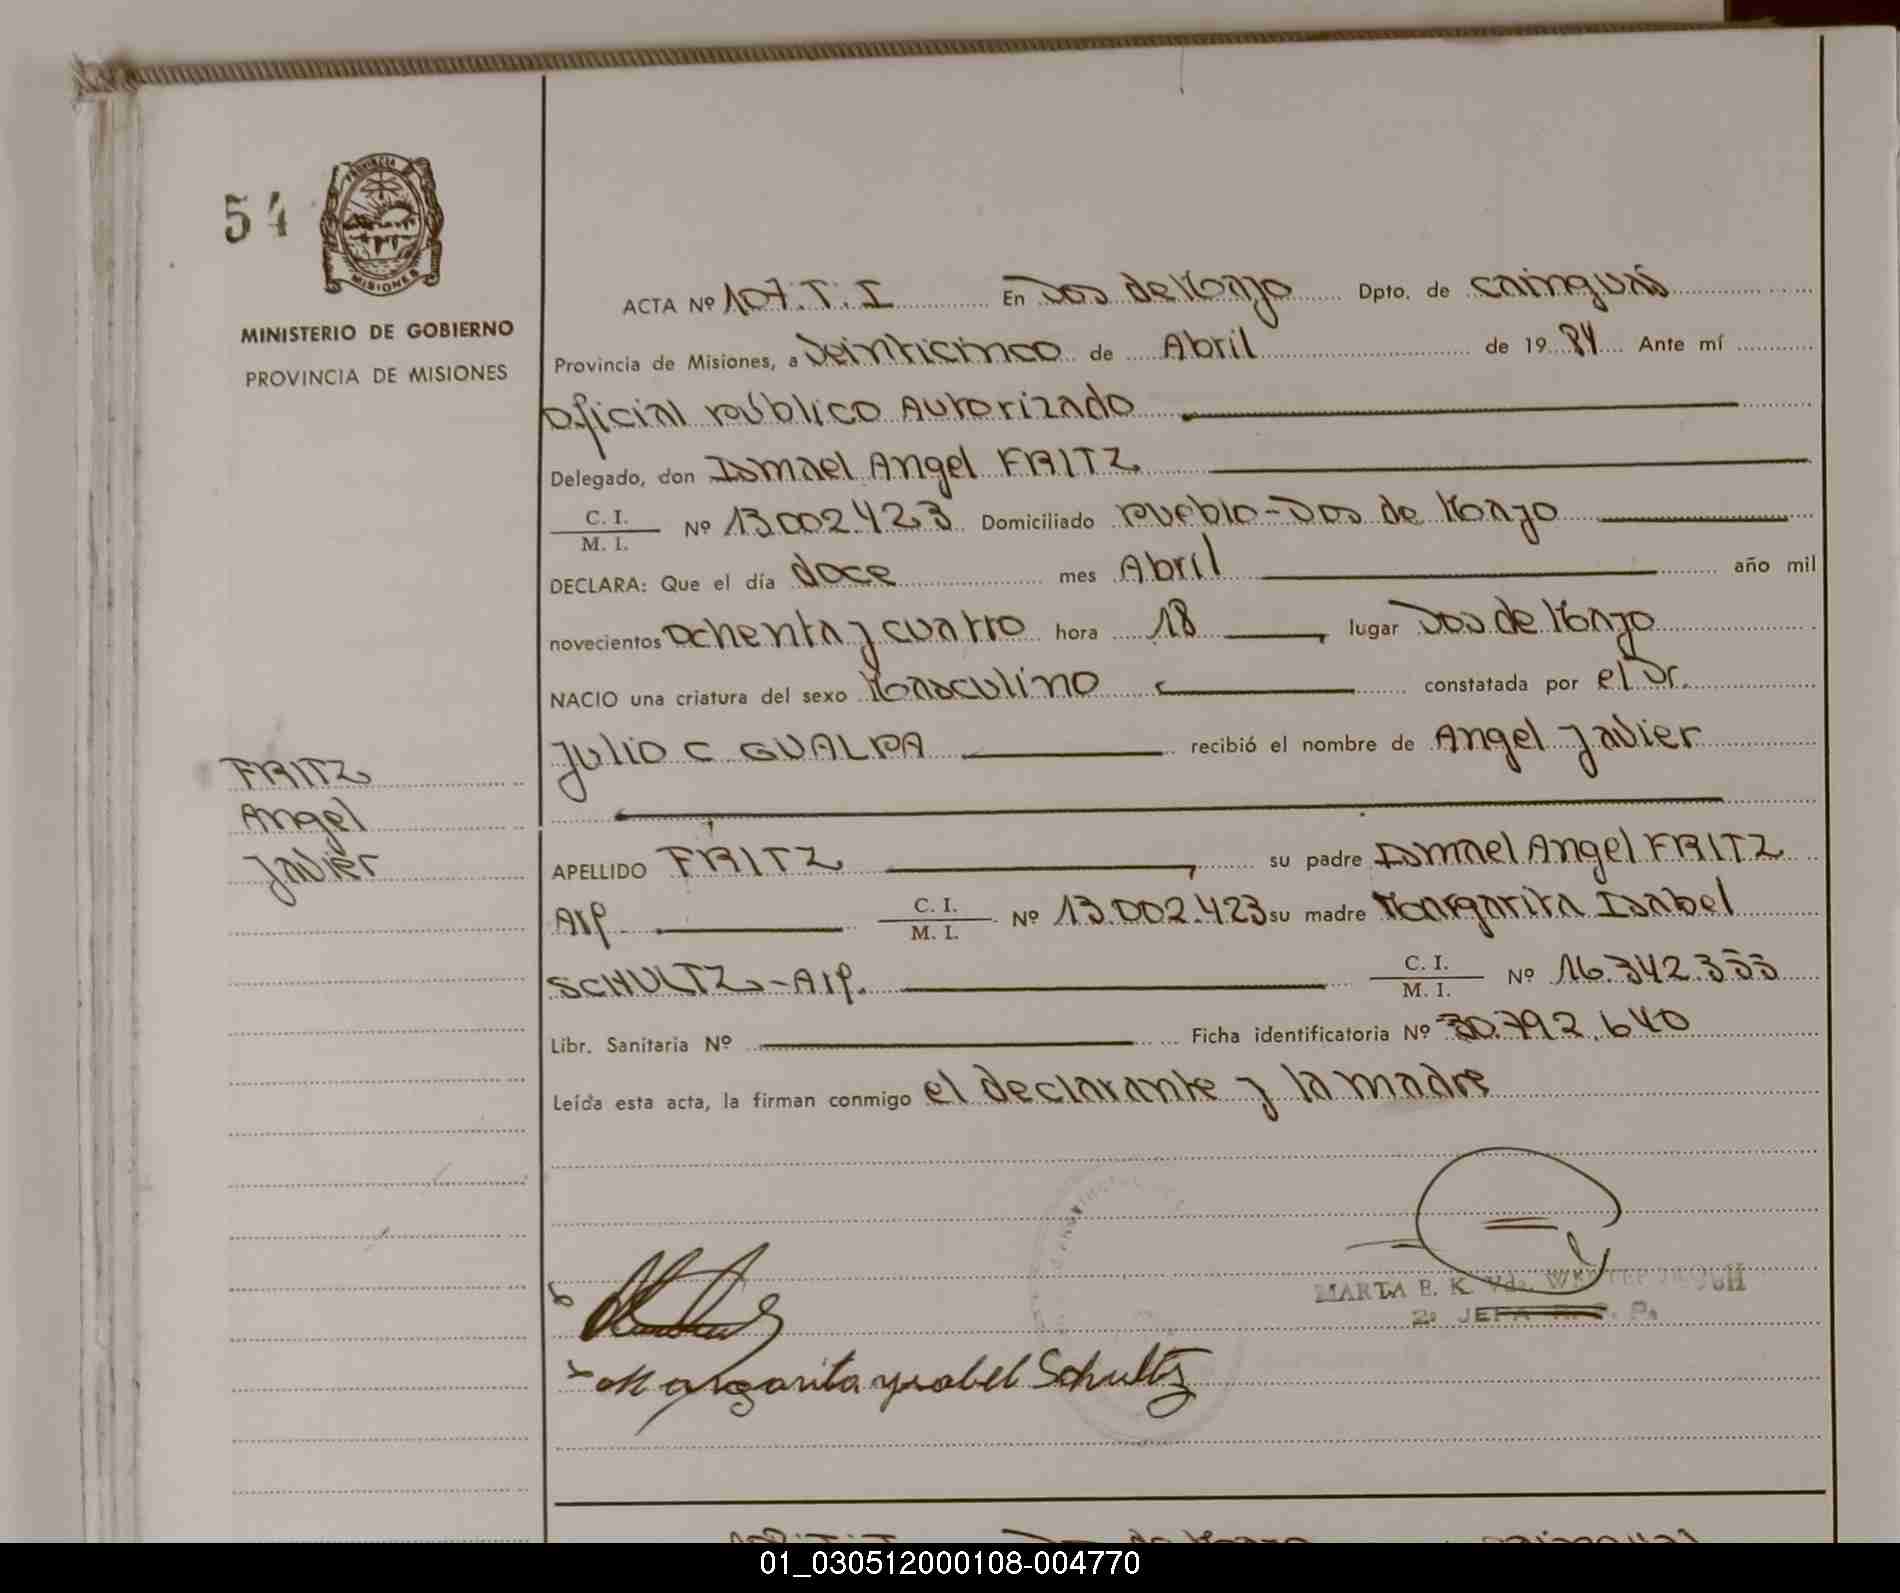 54
PROVINCIA
MISIONES
MINISTERIO DE GOBIERNO
PROVINCIA DE MISIONES
ACTA Nº 107.T.I En Dos de Mayo Dpto. de Cainguás
Provincia de Misiones, a Veinticinco de Abril de 19 84 Ante mí
Oficial Público Autorizado
Delegado, don Ismael Angel FRITZ
C. I.
M. I. Nº 13.002.423 Domiciliado Pueblo-Dos de Mayo
DECLARA: Que el día doce mes Abril año mil
novecientos ochenta y cuatro hora 18 lugar Dos de Mayo
NACIO una criatura del sexo Masculino constatada por el Dr.
Julio C GUALPA recibió el nombre de Angel Javier
FRITZ
Angel
Javier
APELLIDO FRITZ su padre Ismael Angel FRITZ
Arg. C. I.
M. I. Nº 13.002.423 su madre Margarita Isabel
SCHULTZ-Arg. C. I.
M. I. Nº 16.342.353
Libr. Sanitaria Nº Ficha identificatoria Nº 30.792.640
Leída esta acta, la firman conmigo el declarante y la madre
MARTA E. K. Vda.
2º JEFA R. P.
Margarita ysabel Schultz
01_030512000108-004770